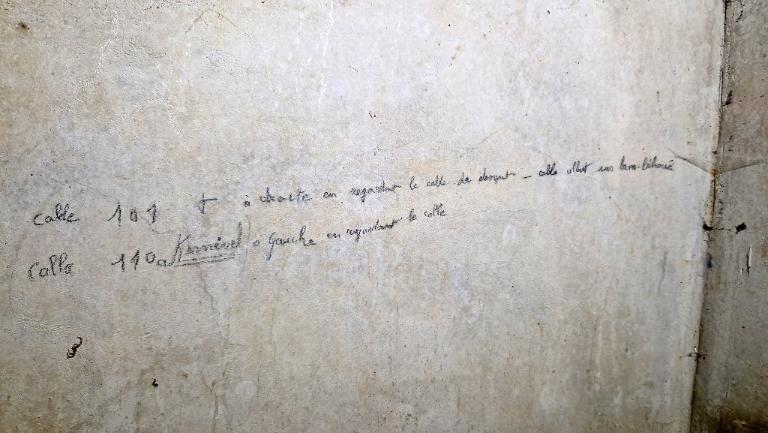 cable 101 + à droite en regardant le cable de devant - cable allant vers
cable 110 a Kernével a Gauche en regardant le cable